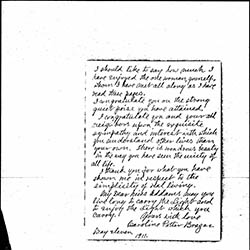 I should like to say how much I
have enjoyed the one woman, yourself,
whom I have met all along as I have
read these pages.
I congratulate you on the strong
quiet poise you have attained!
I congratulate you and your old
neighbors upon the exquisite
sympathy and interest with which
you understand other lives than
your own. There is wondrous beauty
in the way you have seen the unity of
all life.
I thank you for what you have
shown me in respect to the
simplicity of real living.
My dear Miss Addams may you
live long to carry the light and
to enjoy the light which you
carry.
Yours with love
Caroline
May eleven
1911.